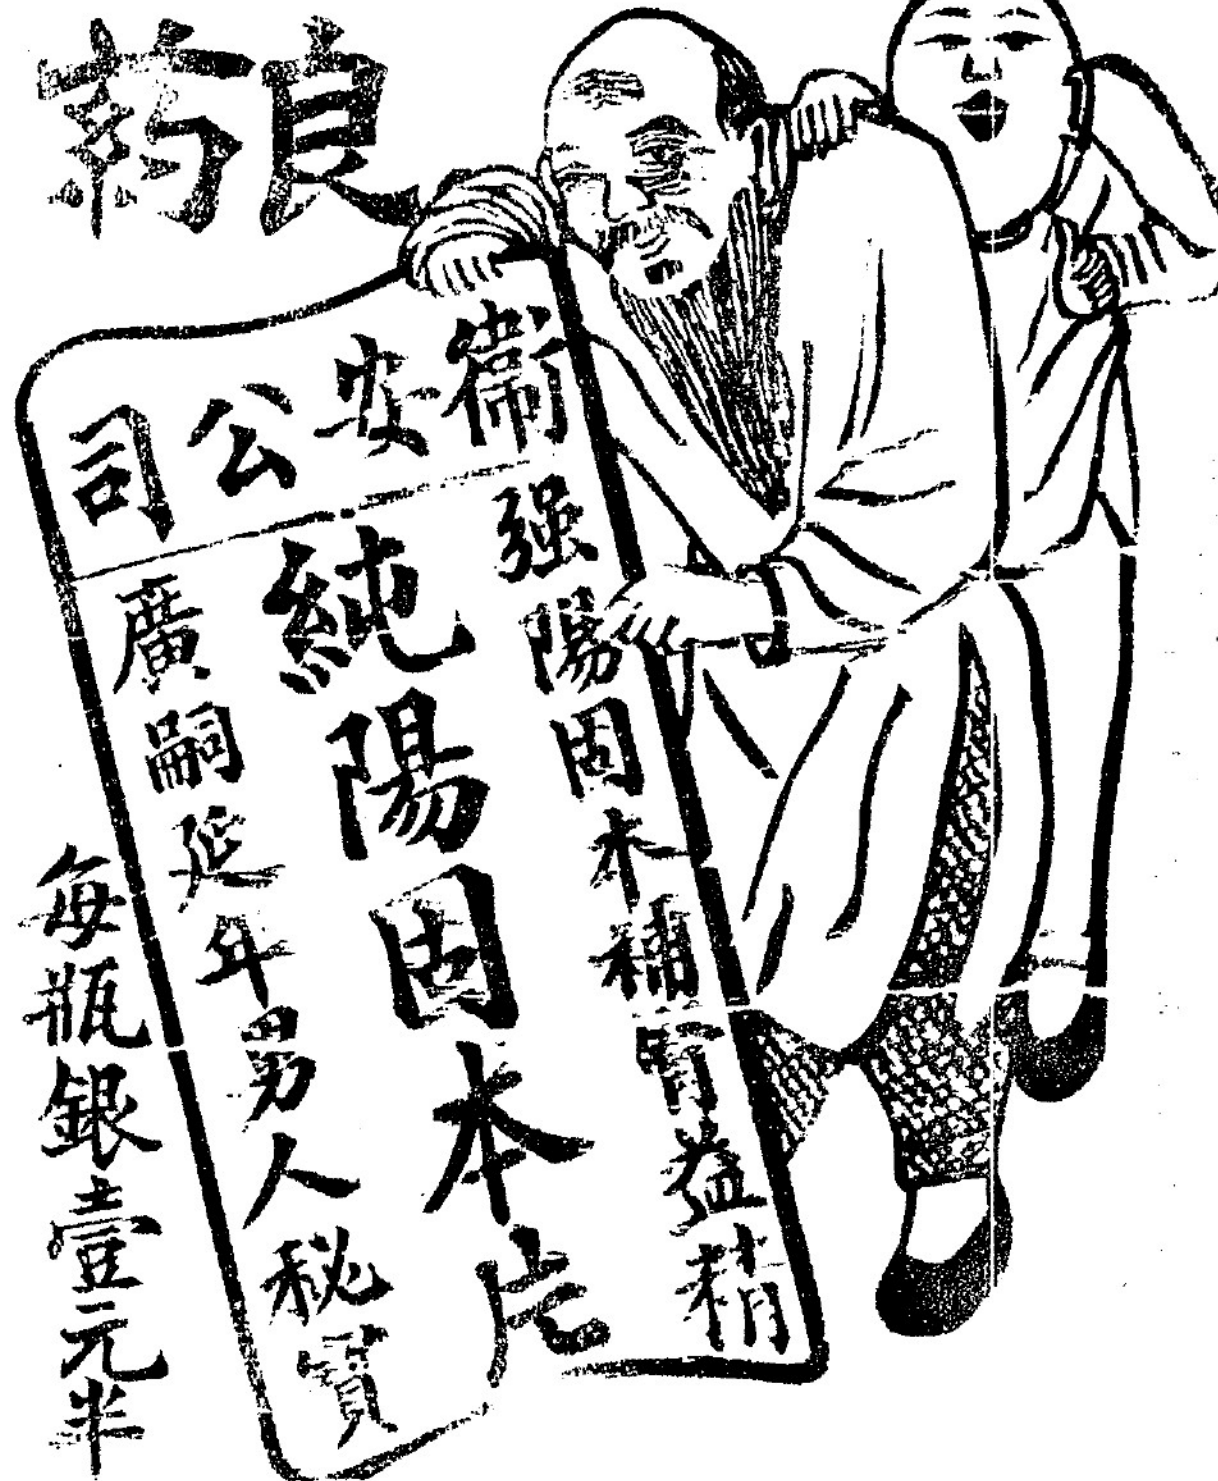 良药
衛安公司
强陽固本補腎益精
純陽固本片
廣嗣延年男人秘寶
每瓶銀壹元半